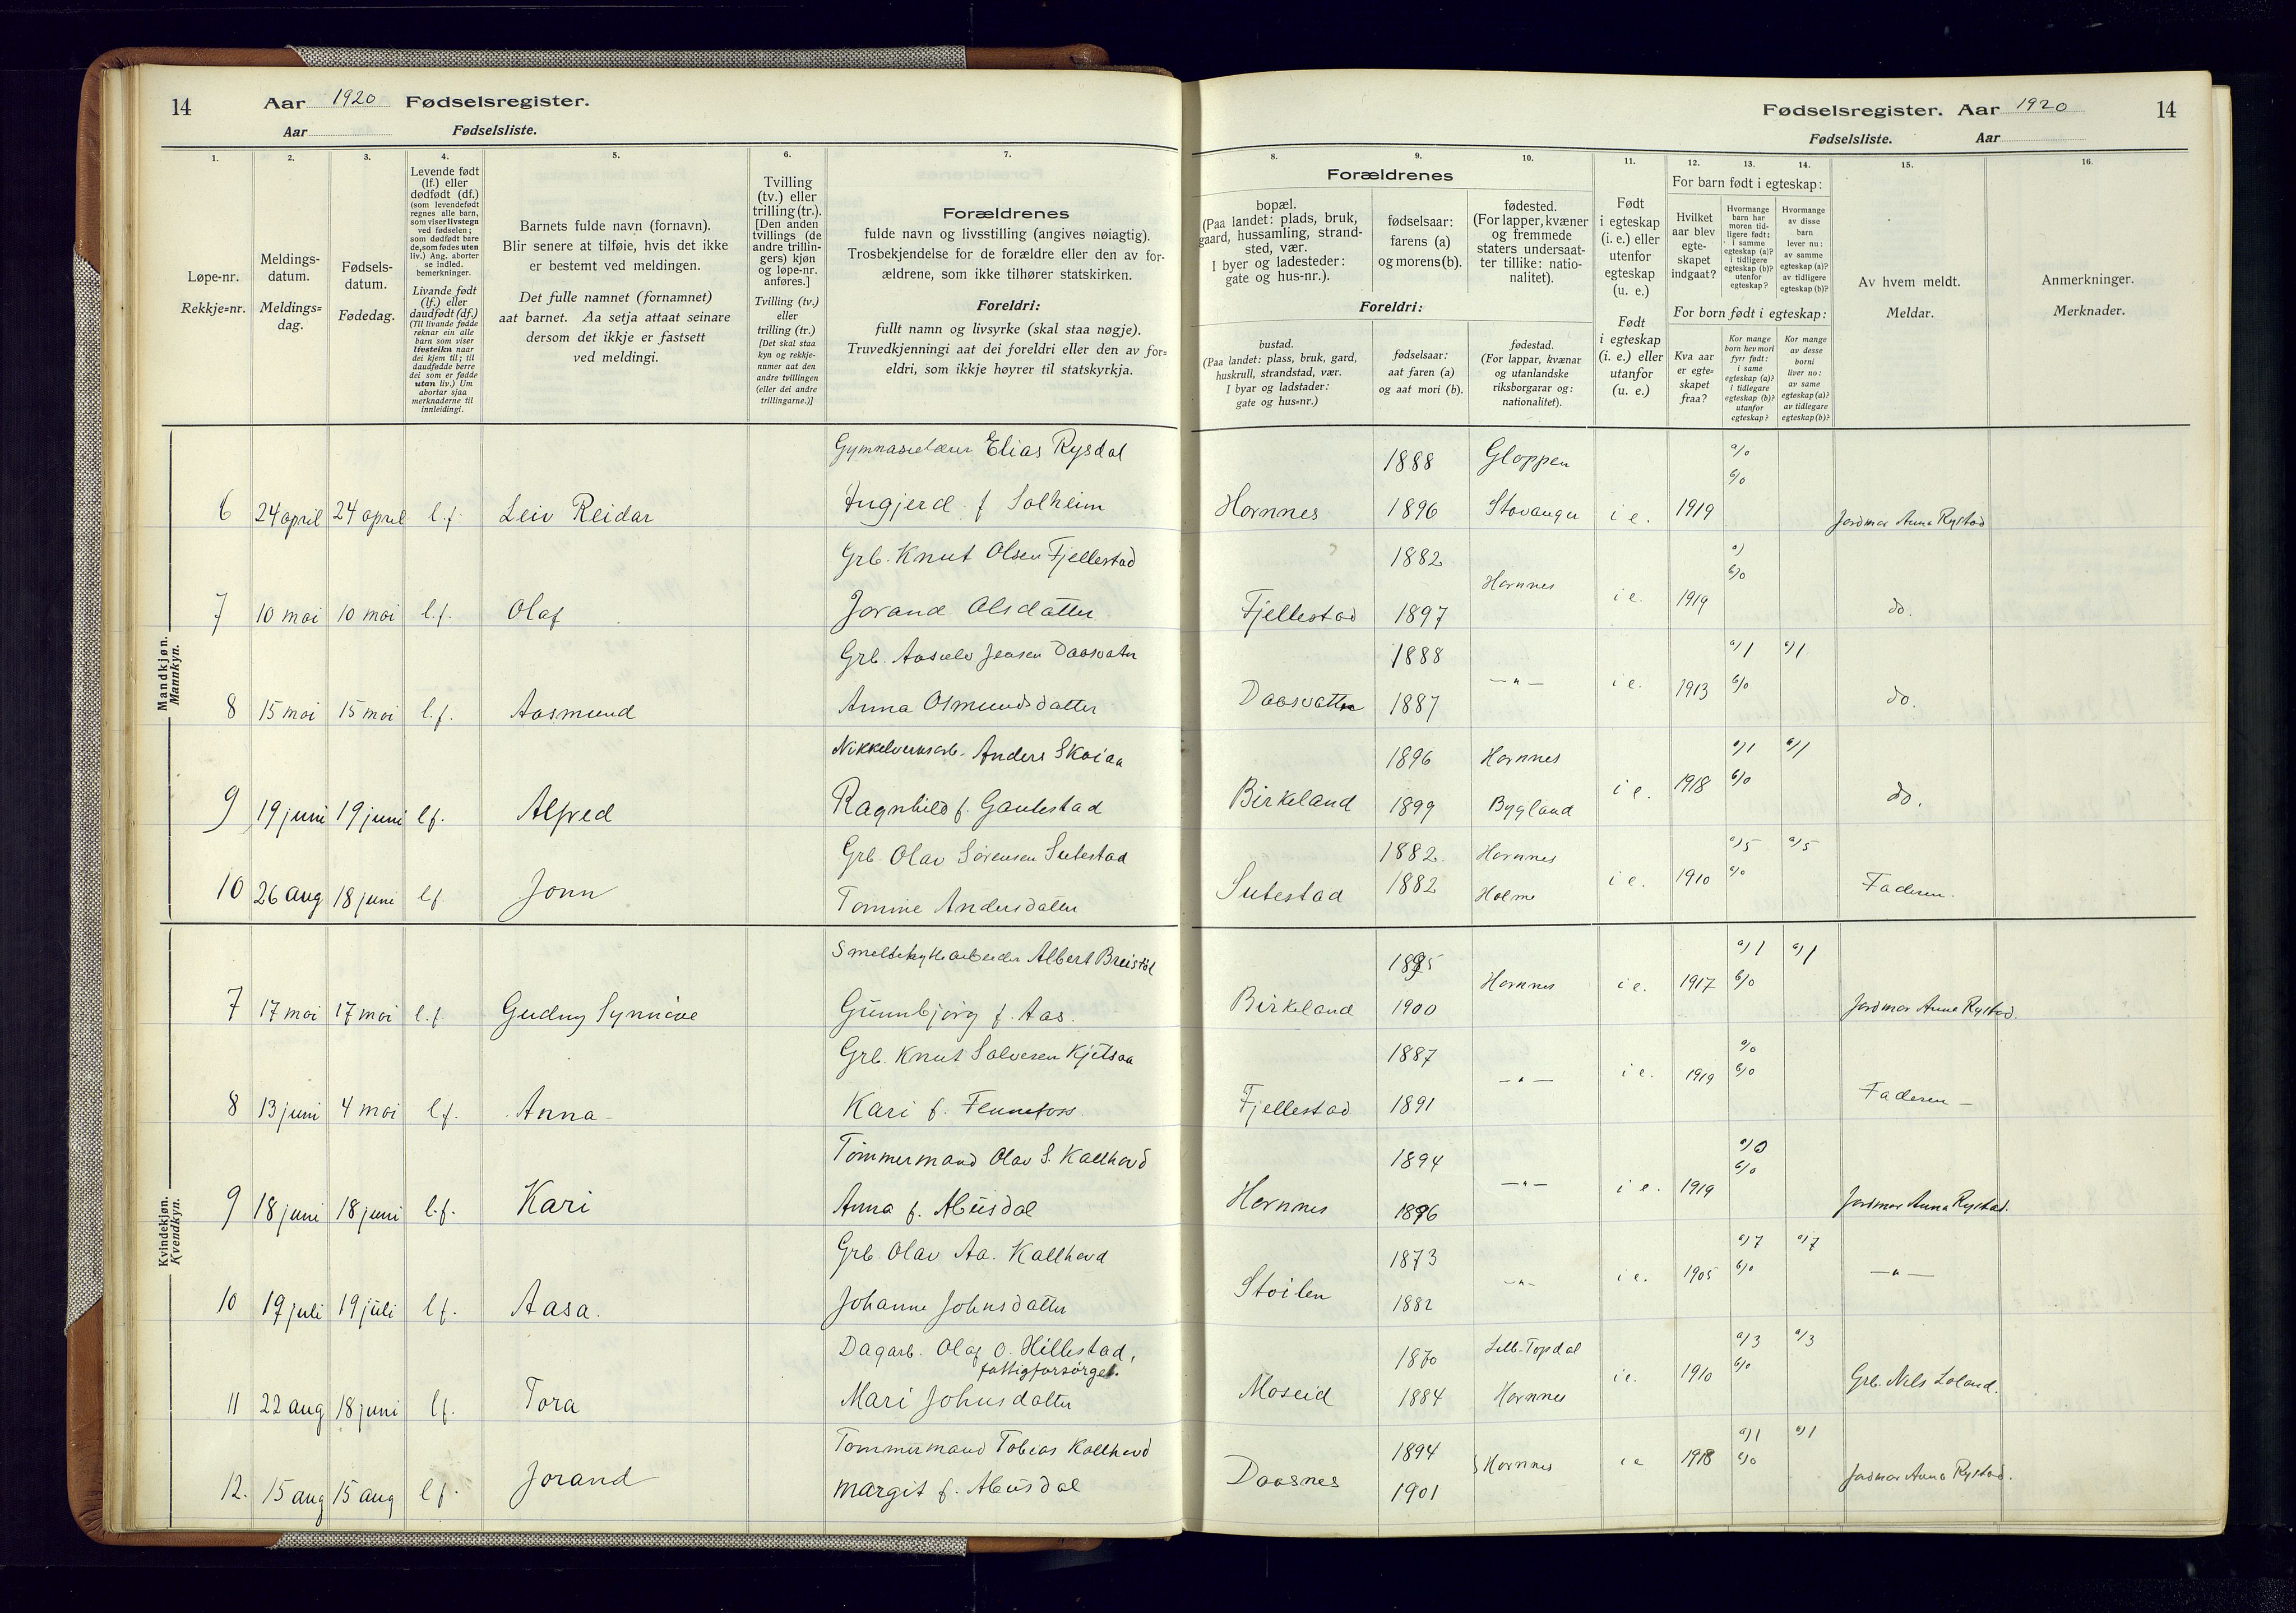 14 Aar 1920 Fødselsregister.
Aar Fødselsliste.
1. 2. 3. 4. 5. 6. 7.
Løpe-nr.
Rekkje=nr.
Meldings-
datum.
Meldings=
dag.
Fødsels-
datum.
Fødedag.
Levende født
(lf.) eller
dødfødt (df.)
(som levendefødt
regnes alle barn,
som viser livstegn
ved fødselen;
som dødfødt bare
de, som fødes uten
liv.) Ang. aborter
se indled.
bemerkninger.
Livande født
(lf.) eller
daudfødt (df.)
(Til livande fødde
reknar ein alle
barn som viser
livsteikn naar
dei kjem til; til
daudfødde berre
dei som er fødde
utan liv.) Um
abortar sjaa
merknaderne til
innleidingi.
Barnets fulde navn (fornavn).
Blir senere at tilføie, hvis det ikke
er bestemt ved meldingen.
Det fulle namnet (fornamnet)
aat barnet. Aa setja attaat seinare
dersom det ikkje er fastsett
ved meldingi.
Tvilling
(tv.) eller
trilling (tr.).
[Den anden
tvillings (de
andre trillin-
gers) kjøn
og løpe-nr.
anføres.]
Tvilling (tv.)
eller
trilling (tr.)
[Det skal staa
kyn og rekkje-
numer aat den
andre tvillingen
(eller dei andre
trillingarne.)]
Forældrenes
fulde navn og livsstilling (angives nøiagtig).
Trosbekjendelse for de forældre eller den av for-
ældrene, som ikke tilhører statskirken.
Foreldri:
fullt namn og livsyrke (skal staa nøgje).
Truvedkjenningi aat dei foreldri eller den av for=
eldri, som ikkje høyrer til statskyrkja.
Mandkjøn.
Mannkyn.
Gymnasielærer Elias Rysdal
6 24 april 24 april l.f. Leiv Reidar Ingjerd f Solheim
Grb. Knut Olsen Fjellestad
7 10 mai 10 mai l.f. Olaf Jorand Olsdatter
Grb. Aasulv Jensen Daasvatn
8 15 mai 15 mai l.f. Aasmund Anna Osmundsdatter
Nikkelverksarb. Anders Skaiaa
9 19 juni 19 juni lf. Alfred Ragnhild f. Gautestad
Grb. Olav Sørensen Sutestad
10 26 aug 18 juni lf Jonn Tomine Andersdatter
Kvindekjøn.
Kvendkyn.
Smeltehyttearbeider Albert Breistøl
7 17 mai 17 mai l.f. Gudny Synnøve Gunnbjørg f. Aas.
Grb. Knut Salvesen Kjetsaa
8 13 juni 4 mai l.f. Anna Kari f. Fennefoss
Tømmermand Olav S. Kallhovd
9 18 juni 18 juni l.f. Kari Anna f. Abusdal
Grb. Olav Aa. Kallhovd
10 19 juli 19 juli l.f. Aasa. Johanne Johnsdatter
Dagarb. Olaf O. Hillestad,
fattigforsørget.
11 22 aug 18 juni lf. Tora Mari Johnsdatter
Tømmermand Tobias Kallhovd
12. 15 aug 15 aug l f. Jorand Margit f. Abusdal
Fødselsregister. Aar 1920 14
Fødselsliste. Aar
8. 9. 10. 11. 12. 13. 14. 15. 16.
Forældrenes
bopæl.
(Paa landet: plads, bruk,
gaard, hussamling, strand-
sted, vær.
I byer og ladesteder:
gate og hus-nr.).
fødselsaar:
farens (a)
og morens (b).
fødested.
(For lapper, kvæner
og fremmede
staters undersaat-
ter tillike: natio-
nalitet).
Foreldri:
bustad.
(Paa landet: plass, bruk, gard,
huskrull, strandstad, vær.
I byar og ladstader:
gate og hus=nr.)
fødselsaar:
aat faren (a)
og aat mori (b).
fødestad.
(For lappar, kvænar
og utanlandske
riksborgarar og:
nationalitet).
Født
i egteskap
(i. e.) eller
utenfor
egteskap
(u. e.)
Født
i egteskap
(i. e.) eller
utanfor
(u. e.)
For barn født i egteskap:
Hvilket
aar blev
egte-
skapet
indgaat?
Hvormange
barn har
moren tid-
ligere født:
i samme
egteskap (a)?
i tidligere
egteskap (b)?
utenfor
egteskap?
Hvormange
av disse
barn
lever nu:
av samme
egteskap (a)?
av tidligere
egteskap (b)?
For born født i egteskap:
Kva aar
er egte=
skapet
fraa?
Kor mange
born hev mori
fyrr født:
i same
egteskap (a)?
i tidlegare
egteskap (b)?
utanfor
egteskap?
Kor mange
av desse
borni
liver no:
av same
egteskap (a)?
av tidlegare
egteskap (b)?
Av hvem meldt.
Meldar.
Anmerkninger.
Merknader.
1888 Gloppen a/0
b/0
Hornnes 1896 Stavanger i e. 1919 Jordmor Anna Rystad
1882 a)
Hornnes b/0
Fjellestad 1897 i e. 1919 do.
1888 a/1 a/1
Daasvatn 1887 —"— i e. 1913 b/0 do.
1896 Hornnes a/1 a/1
Birkeland 1899 Bygland i e. 1918 b/0 do.
1882. Hornnes a/5 a/5
Sutestad 1882 Holme i e. 1910 b/0 Faderen.
1895 a/1 a/1
Birkeland 1900 Hornnes i e. 1917 b/0 Jordmor Anna Rystad.
1887 a/0
Fjellestad 1891 —"— i e. 1919 b/0 Faderen —
1894 a/0
Hornnes 1896 —"— i e. 1919 b/0 Jordmor Anna Rystad.
1873 a/7 a/7
Stoilen 1882 —"— i e. 1905 b/0 —"—
1870 a/3 a/3
Moseid 1884 Hornnes i e. 1910 b/0 Grb. Nels Loland.
1894 a/1 a/1
Daasnes 1901 Hornnes i e 1918 b/0 Jordmor Anna Rystad.